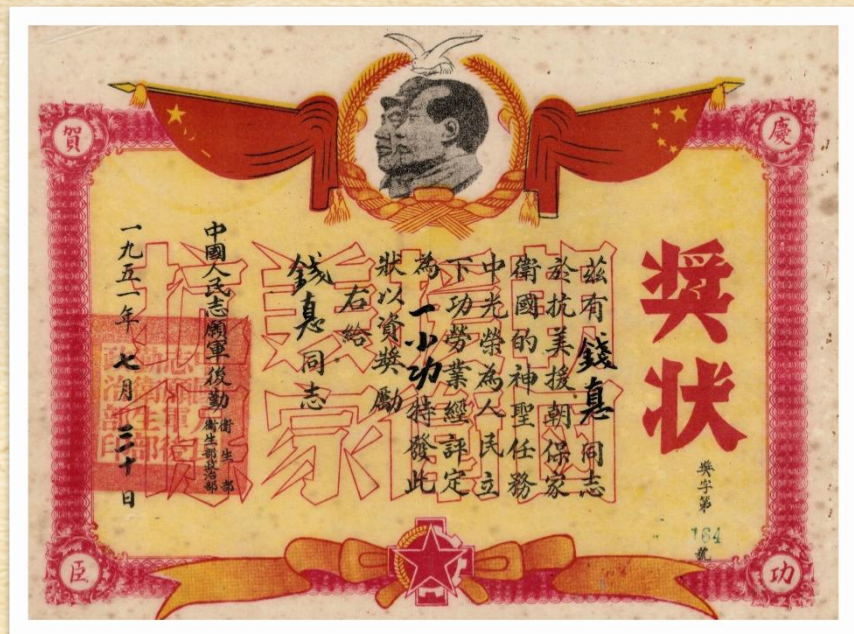 慶
賀
功
臣
奬状
奬字第 164 號
茲有錢悳同志
於抗美援朝保家
衛國的神聖任務
中光榮為人民立
下功勞業經評定
為一小功特發此
狀以資奬勵
右給
錢悳同志
中國人民志願軍後勤
衛生部
衛生部政治部
一九五一年七月三十日
抗美援朝
保家衛國